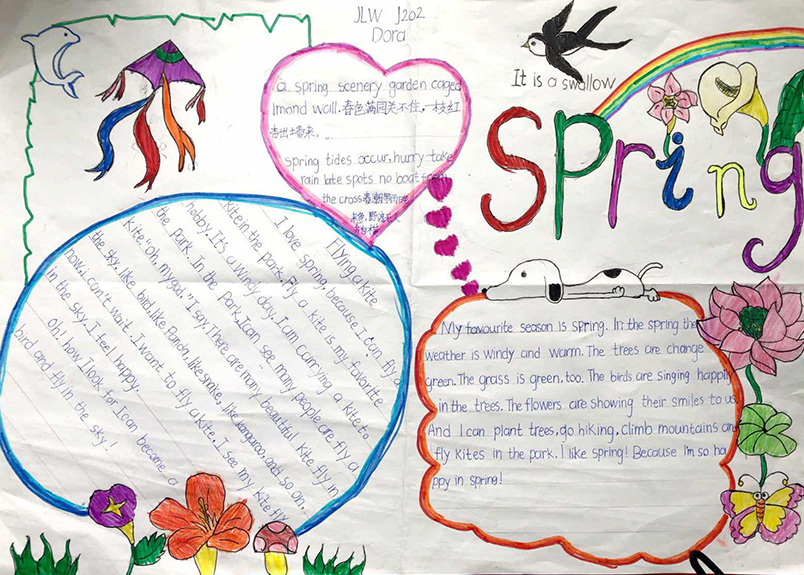 JLW J202
Dora
It is a swallow
Spring
a spring scenery garden caged
lmond wall.春色满园关不住,一枝红
杏出土墙来。
spring tides occur, hurry take
rain late spots no boat from
the cross春潮带雨晚
Flying a kite
I love spring, because I can fly a
kite in the park. Fly a kite is my favorite
hobby. It's a windy day, I am carrying a kite to
the park. In the park I can see many people are fly a
kite. "oh, my gad." I say, There are many beautiful kite fly in
the sky, like bird, like Panda, like snake, like kangaroo, and so on,
now, i can't wait. I want to fly a kite. I see my kite fly
in the sky. I feel happy.
Oh! how I look for I can become a
bird and fly in the sky!
My favourite season is spring. In the spring the
weather is windy and warm. The trees are change
green. The grass is green, too. The birds are singing happily
in the trees. The flowers are showing their smiles to us.
And I can plant trees, go hiking, climb mountains and
fly kites in the park. I like spring! Because I'm so ha
ppy in spring!